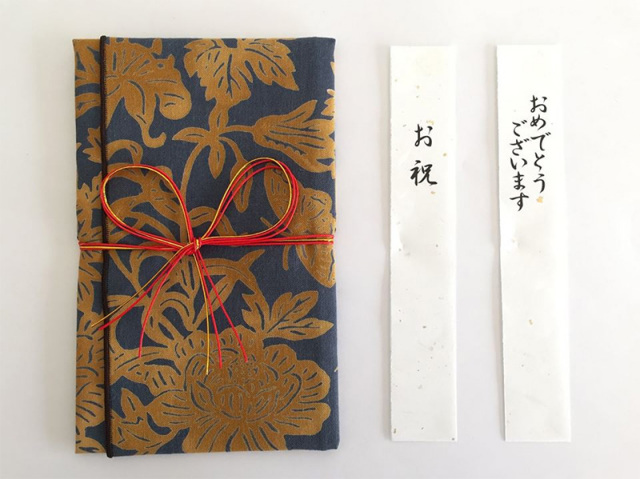 お祝
おめでとう
ございます